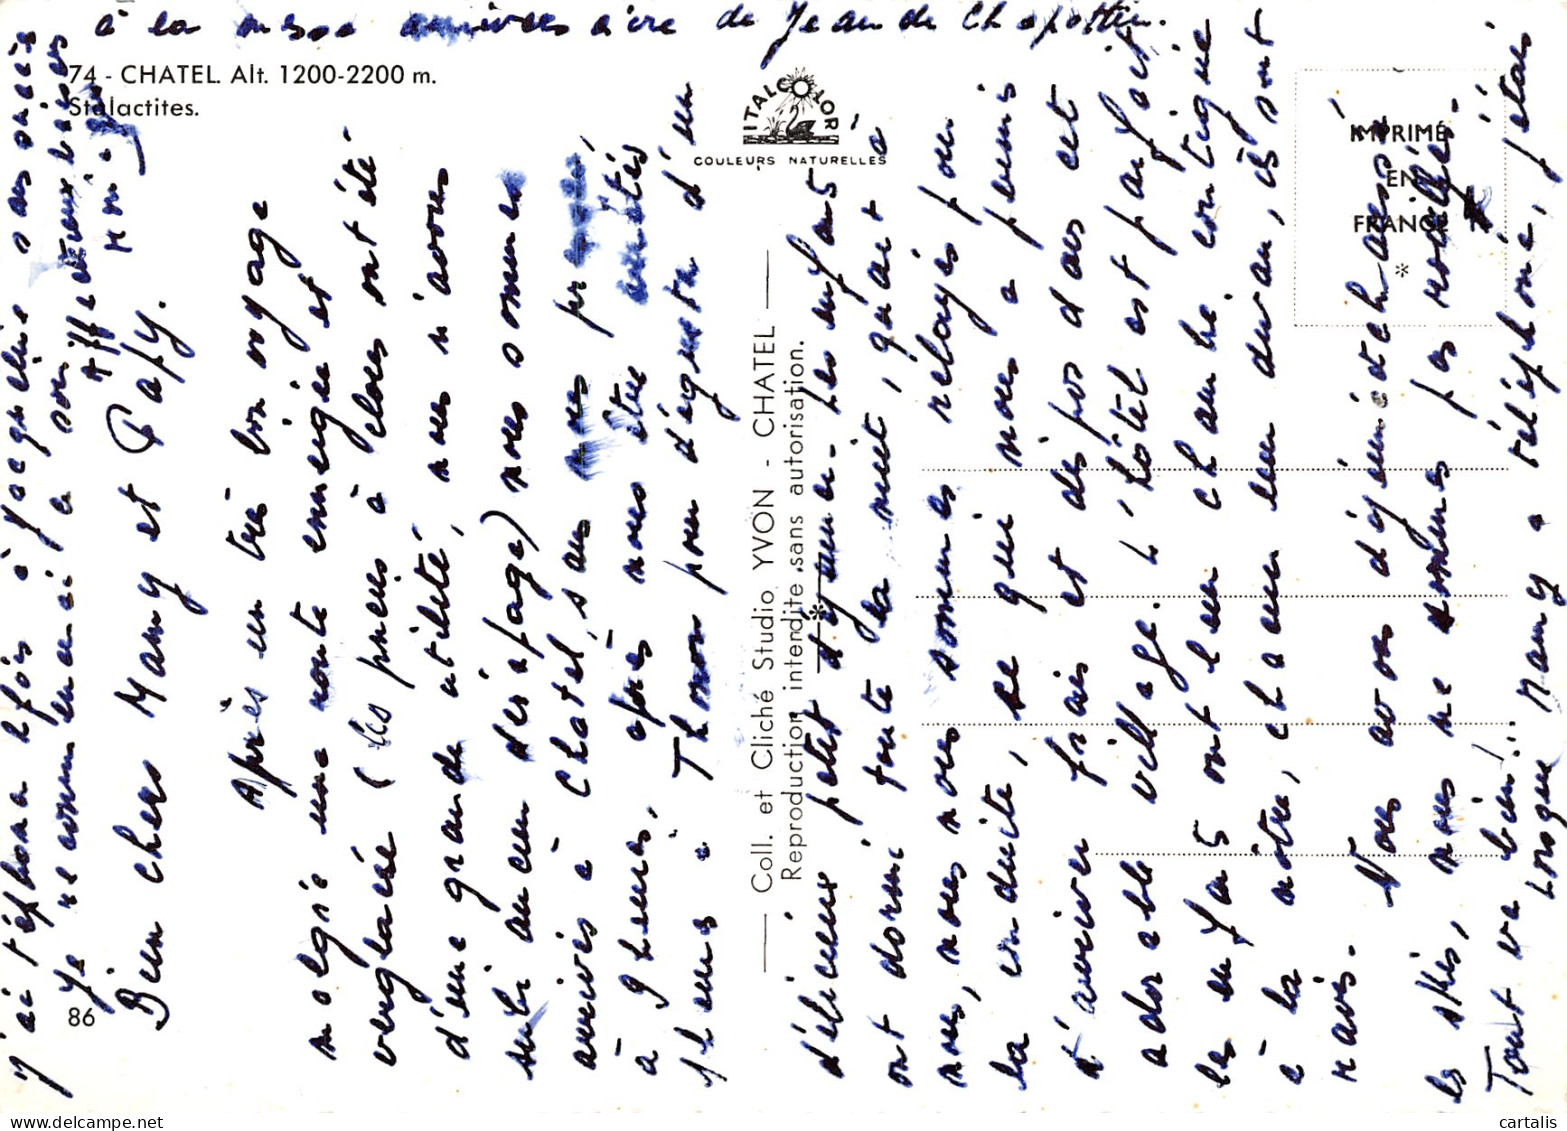 74 - CHATEL. Alt. 1200-2200 m.
Stalactites.
ITALCOLOR
COULEURS NATURELLES
IMPRIMÉ
EN
FRANCE
*
Coll. et Cliché Studio YVON - CHATEL
Reproduction interdite sans autorisation.
*
86
Bien chers Mamy et Papy.
Après un très bon voyage
malgré une route enneigée et
verglacée (les pneus à clous ont été
d'une grande utilité, nous n'avons
subi aucun dérapage) nous sommes
arrivés à Chatel sans
à 9 heures, après nous être arrêtés
à Thonon pour déguster un
délicieux petit déjeuner. Les enfants
ont dormi toute la nuit, quant à
nous, nous nous sommes relayés pour
la conduite, ce qui nous a permis
d'arriver frais et dispos dans cet
adorable village. L'hôtel est parfait
les enfants ont leur chambre contigue
à la nôtre, chacun leur divan, ils sont
ravis.
Nous avons déjà
les skis, nous ne sommes pas rouillés.
Tout va bien!! Mamy a téléphoné, j'étais
à la messe anniversaire de Jean de
j'ai téléphoné à Jacqueline sans succès
Je recommencerai ce soir
Affectueux baisers